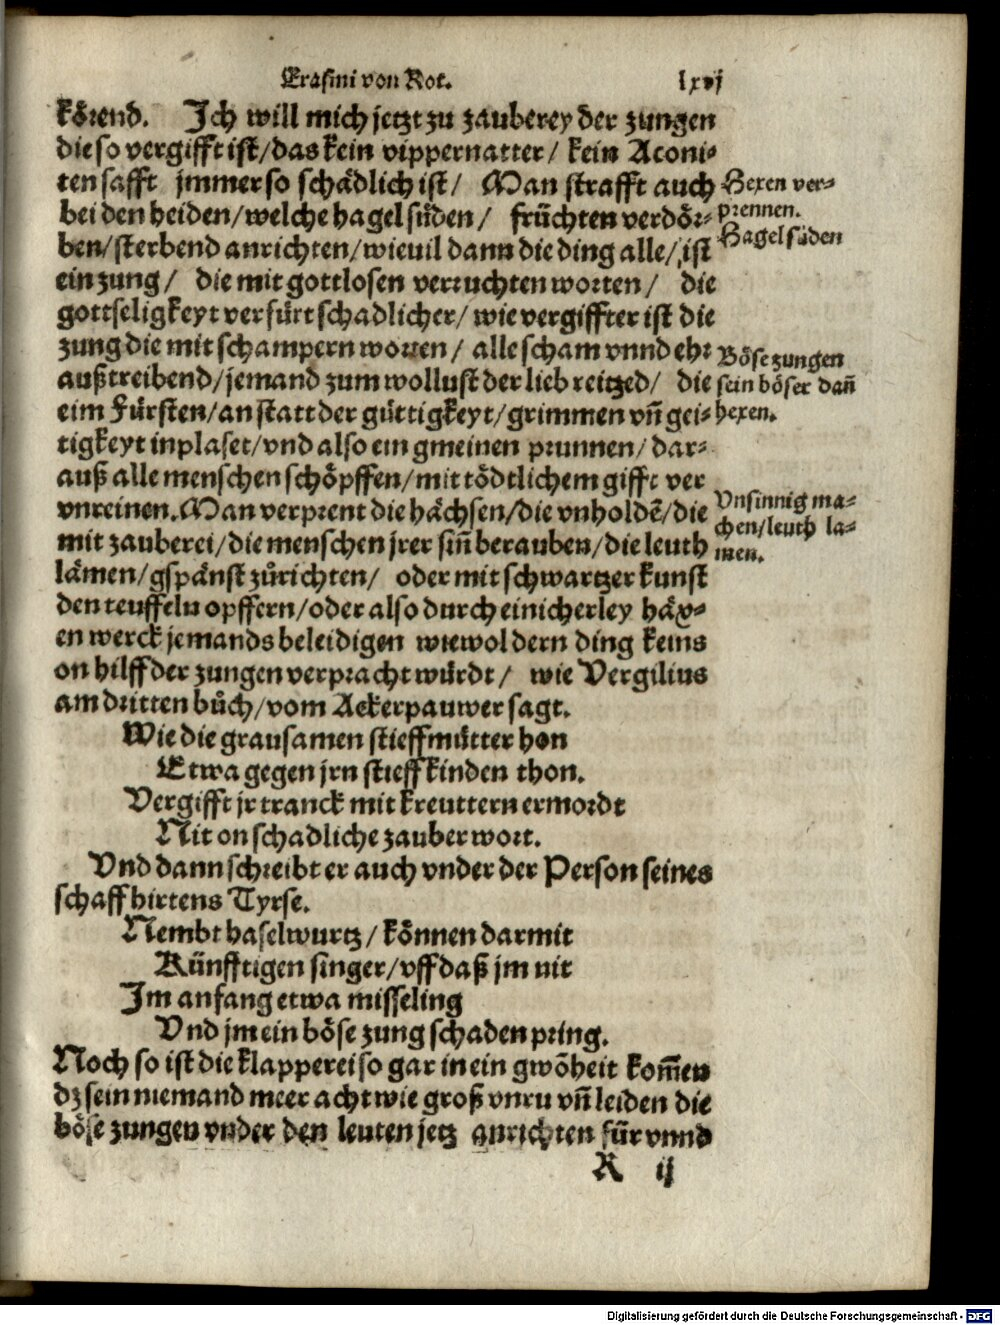 Erasmi von Rot. lxvj
körend. Jch will mich jetzt zu zauberey der zungen
die so vergifft ist/das kein vippernatter/ kein Aconi-
ten safft jmmer so schädlich ist/ Man strafft auch
bei den heiden/welche hagel süden/ früchten verdör-
ben/sterbend anrichten/wieuil dann die ding alle/ist
ein zung/ die mit gottlosen verruchten worten/ die
gottseligkeyt verfürt schadlicher/ wie vergiffter ist die
zung die mit schampern worten/ alle scham vnnd ehr
außtreibend/jemand zum wollust der lieb reitzed/ die
eim Fürsten/an statt der güttigkeyt/grimmen vñ gei-
tigkeyt inplaset/vnd also ein gmeinen prunnen/ dar-
auß alle menschen schöpffen/mit tödtlichem gifft ver
vnreinen. Man verprent die hächsen/die vnholdẽ/die
mit zauberei/die menschen jrer siñ berauben/die leuth
lämen/gspänst zůrichten/ oder mit schwartzer kunst
den teuffeln opffern/oder also durch einicherley häx-
en werck jemands beleidigen wiewol dern ding keins
on hilff der zungen verpracht würdt/ wie Vergilius
am dritten bůch/vom Ackerpauwer sagt.
Wie die grausamen stieffmütter hon
Etwa gegen jrn stieffkinden thon.
Vergifft jr tranck mit kreuttern ermordt
Nit on schadliche zauber wort.
Vnd dann schreibt er auch vnder der Person seines
schaffhirtens Tyrse.
Nembt haselwurtz/ können darmit
Künfftigen singer/vff daß jm nit
Jm anfang etwa misseling
Vnd jm ein böse zung schaden pring.
Noch so ist die klapperei so gar in ein gwõheit kom̃en
dz sein niemand meer acht wie groß vnru vñ leiden die
böse zungen vnder den leuten jetz anrichten für vnnd
K ij
Hexen ver-
prennen.
Hagel süden
Böse zungen
sein böser dañ
hexen.
Vnsinnig ma-
chen/leuth la-
men.
Digitalisierung gefördert durch die Deutsche Forschungsgemeinschaft - DFG